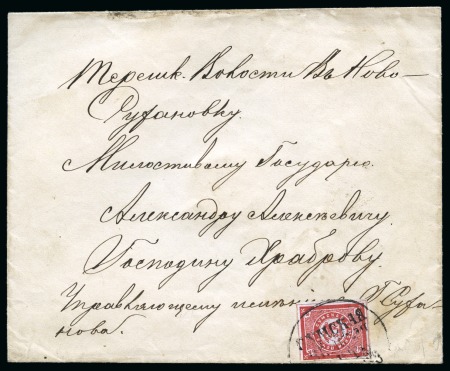 Терешк. Вокости Въ Ново-
Руфановку.
Милостивому Государю.
Александру Алексѣевичу
Господину Храброву.
Управляющему Г. Руфа-
нова.